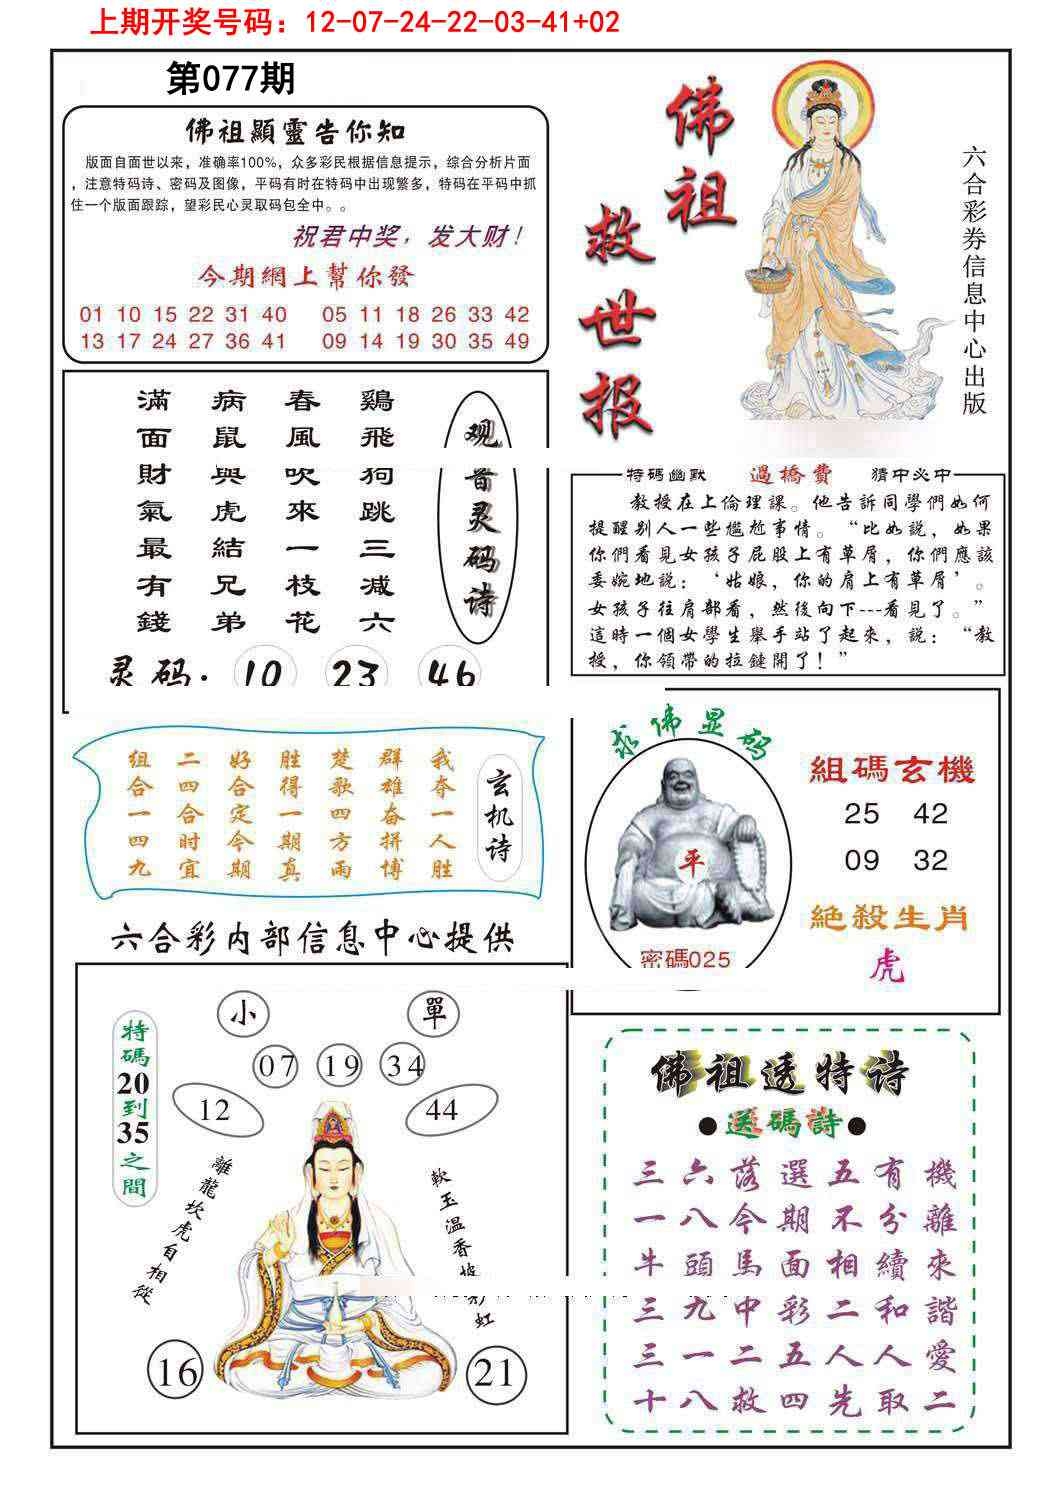 上期开奖号码：12-07-24-22-03-41+02
第077期
佛祖顯靈告你知
版面自面世以来，准确率100%，众多彩民根据信息提示，综合分析片面
，注意特码诗、密码及图像，平码有时在特码中出现繁多，特码在平码中抓
住一个版面跟踪，望彩民心灵取码包全中。。
祝君中奖，发大财！
今期網上幫你發
01 10 15 22 31 40 05 11 18 26 33 42
13 17 24 27 36 41 09 14 19 30 35 49
佛祖
救世报
六合彩券信息中心出版
观音灵码诗
鷄飛狗跳三减六
春風吹來一枝花
病鼠與虎結兄弟
滿面財氣最有錢
灵码. 10 23 46
特碼幽默 過橋費 猜中必中
教授在上倫理課。他告訴同學們如何
提醒别人一些尷尬事情。“比如説，如果
你們看見女孩子屁股上有草屑，你們應該
委婉地説：‘姑娘，你的肩上有草屑’。
女孩子往肩部看，然後向下---看見了。”
這時一個女學生舉手站了起來，説：“教
授，你領帶的拉鏈開了！”
玄机诗
我夺一人胜
群雄奋拼博
楚歌四方雨
胜得一期真
好合定今期
二四合时宜
组合一四九
求佛显码
平
密碼025
組碼玄機
25 42
09 32
絕殺生肖
虎
六合彩内部信息中心提供
特碼20到35之間
小 單
07 19 34
12 44
離龍坎虎自相從
軟玉温香披彩虹
16 21
佛祖透特诗
●送碼詩●
三六落選五有機
一八今期不分離
牛頭馬面相續來
三九中彩二和諧
三一二五人人愛
十八救四先取二